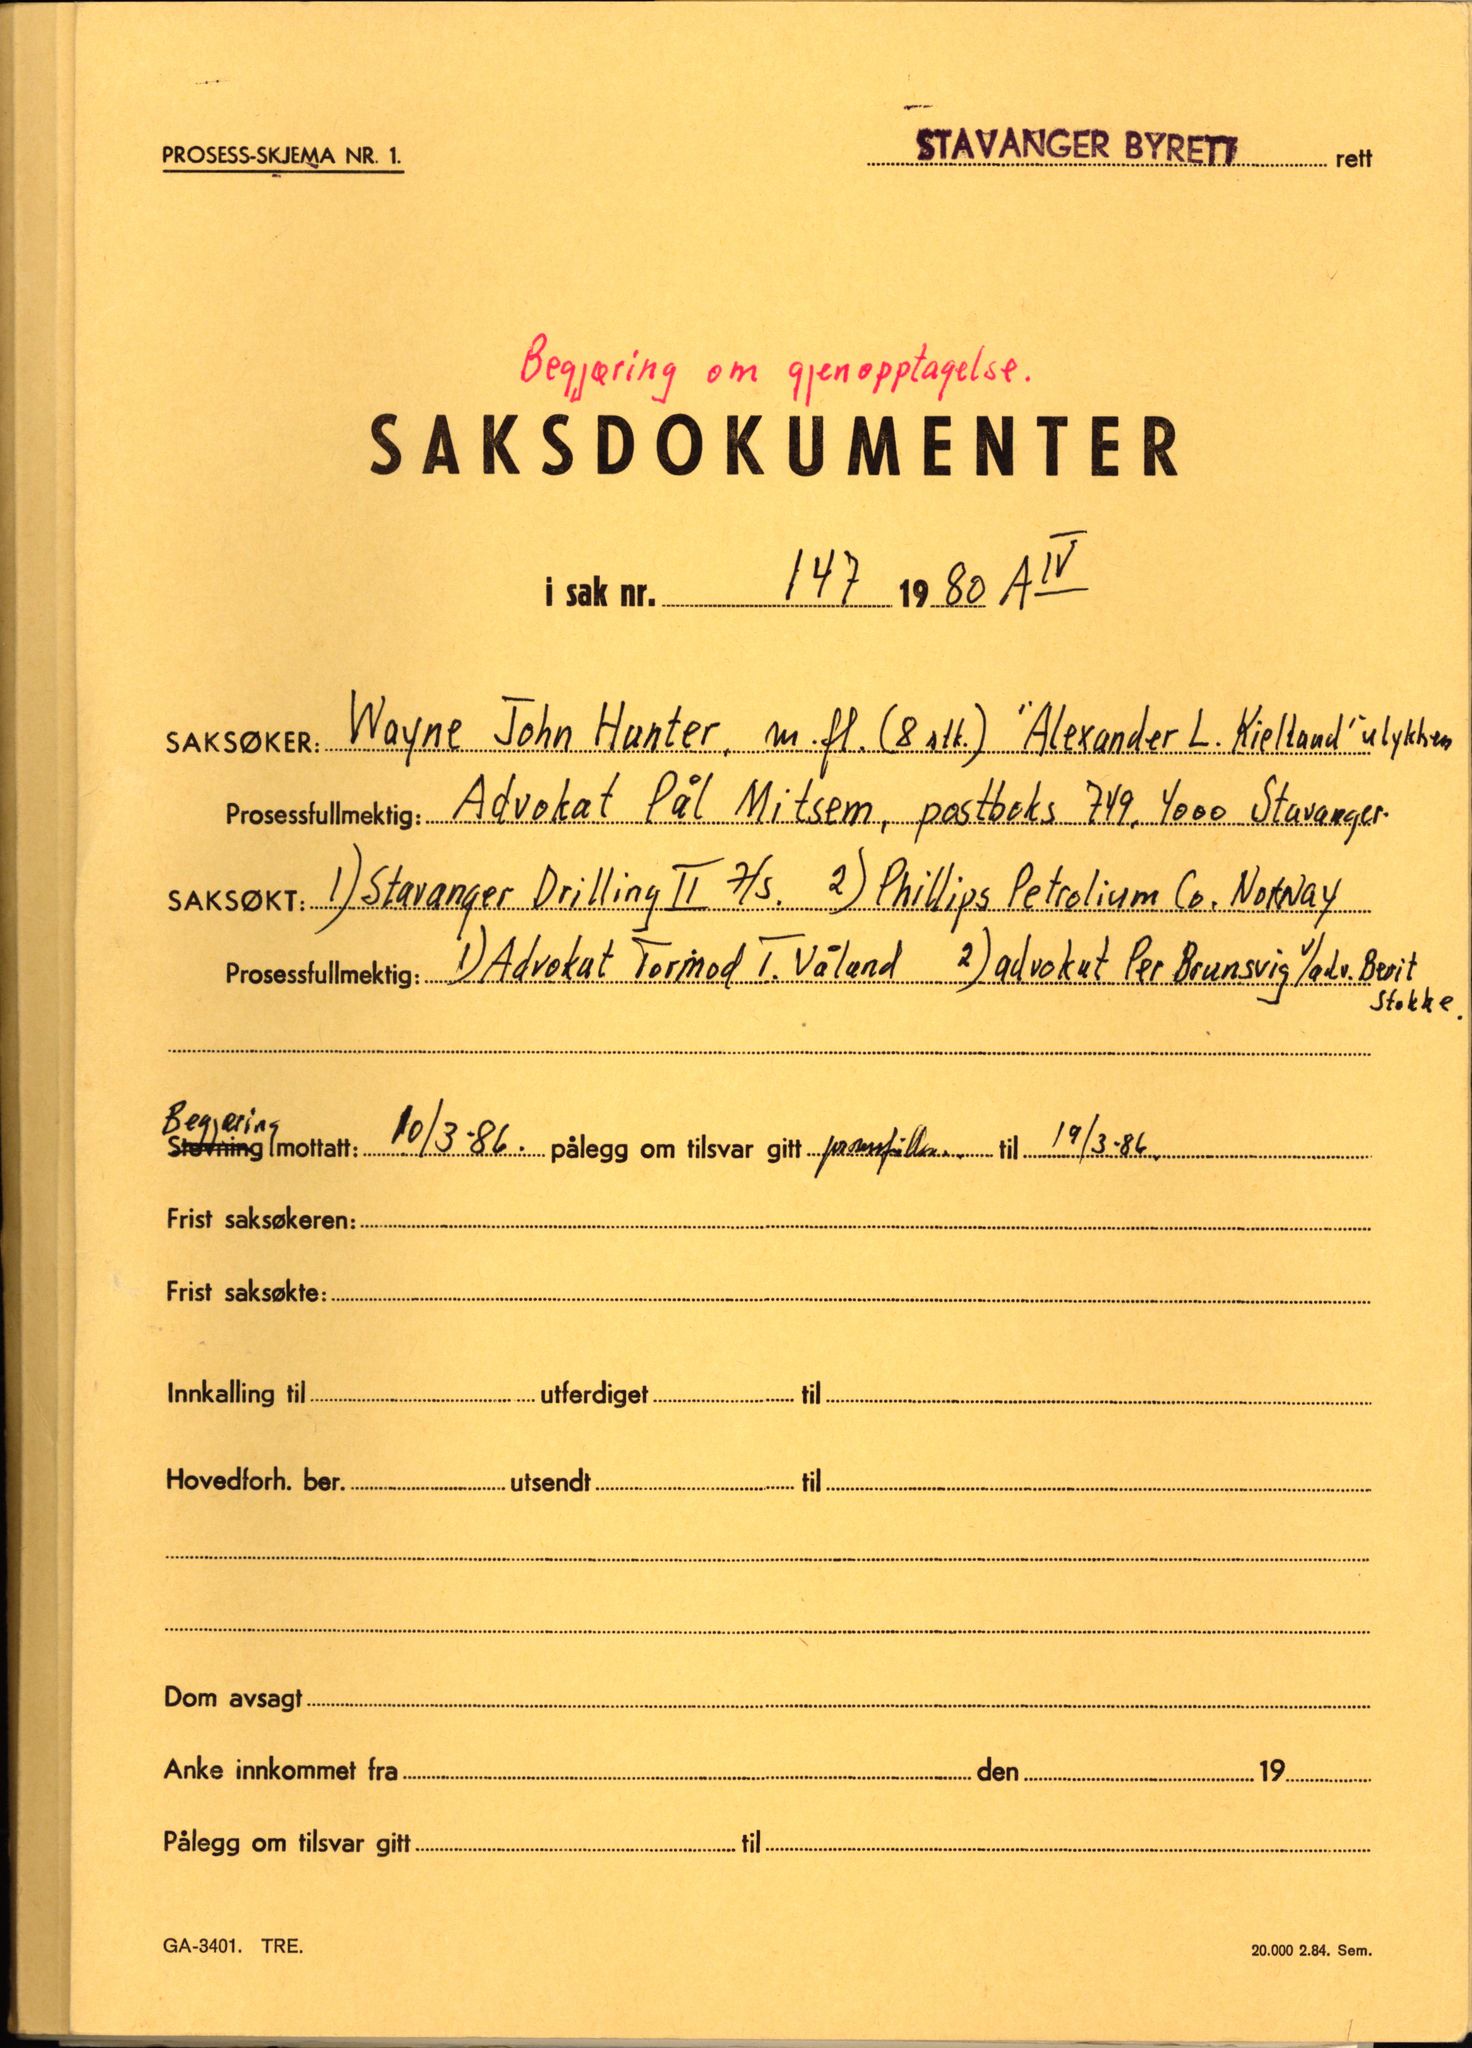 PROSESS-SKJEMA NR. 1.
STAVANGER BYRETT rett
Begjæring om gjenopptagelse.
SAKSDOKUMENTER
i sak nr. 147 1980 A IV
SAKSØKER: Wayne John Hunter, m.fl. (8 stk.) "Alexander L. Kielland" ulykken
Prosessfullmektig: Advokat Pål Mitsem, postboks 749, 4000 Stavanger.
SAKSØKT: 1) Stavanger Drilling II I/S. 2) Phillips Petrolium Co. Norway
Prosessfullmektig: 1) Advokat Tormod T. Våland 2) advokat Per Brunsvig v/adv. Berit
Stokke.
Begjæring
Stevning mottatt: 10/3-86. pålegg om tilsvar gitt til 19/3-86.
Frist saksøkeren:
Frist saksøkte:
Innkalling til utferdiget til
Hovedforh. ber. utsendt til
Dom avsagt
Anke innkommet fra den 19
Pålegg om tilsvar gitt til
GA-3401. TRE.
20.000 2.84. Sem.